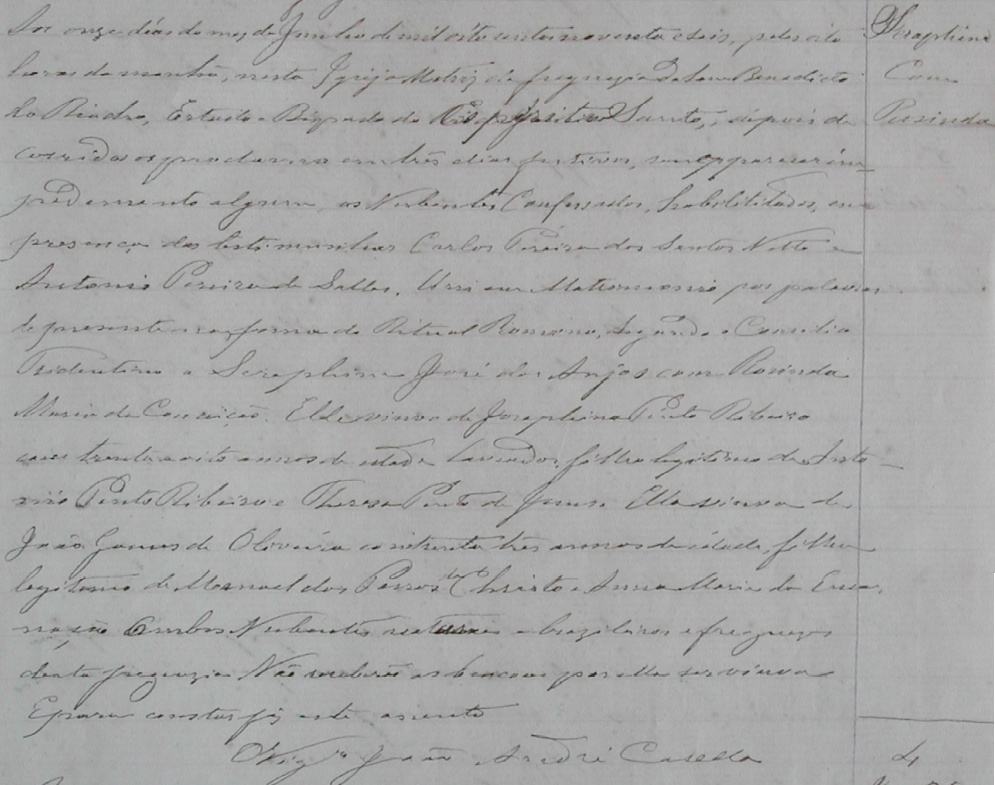 Aos onze dias do mes de Junho de mil oito centos noventa e seis, pelas oito
horas da manhã, nesta Igrija Matriz da freguezia de Sam Benedicto
do Riacho, Estado e Bispado do Espirito Santo, depois de
corridos os proclamas em três dias festivos, sem apparecer im
pedemento algum, os Nubentes Confessados, habilitados, em
presença das testimunhas Carlos Pereira dos Santos Netto e
Antonio Pereira de Salles, Uni em Matromonio por palavras
de presente na forma do Ritual Romano, segundo o Concilio
Tridentino a Seraphim José dos Anjos com Rosinda
Maria da Conceição. Elle viuvo de Josephina Pinto Ribeiro
com trenta e oito annos de idade lavrador, filho legitimo de Anto
nio Pinto Ribeiro e Theresa Pinto de Jesus. Ella viuva de
João Gomes de Oliveira com trenta tres annos de idade, filha
legitima de Manoel dos Passos de Christo e Anna Maria da Encar
nação Ambos Nubentes brazileiros e freguezes
desta freguezia Não receberão as bençoes por ella ser viuva
E para constar fiz este assento
Vigr.º João André Casella
Seraphim
Com
Rosinda
4